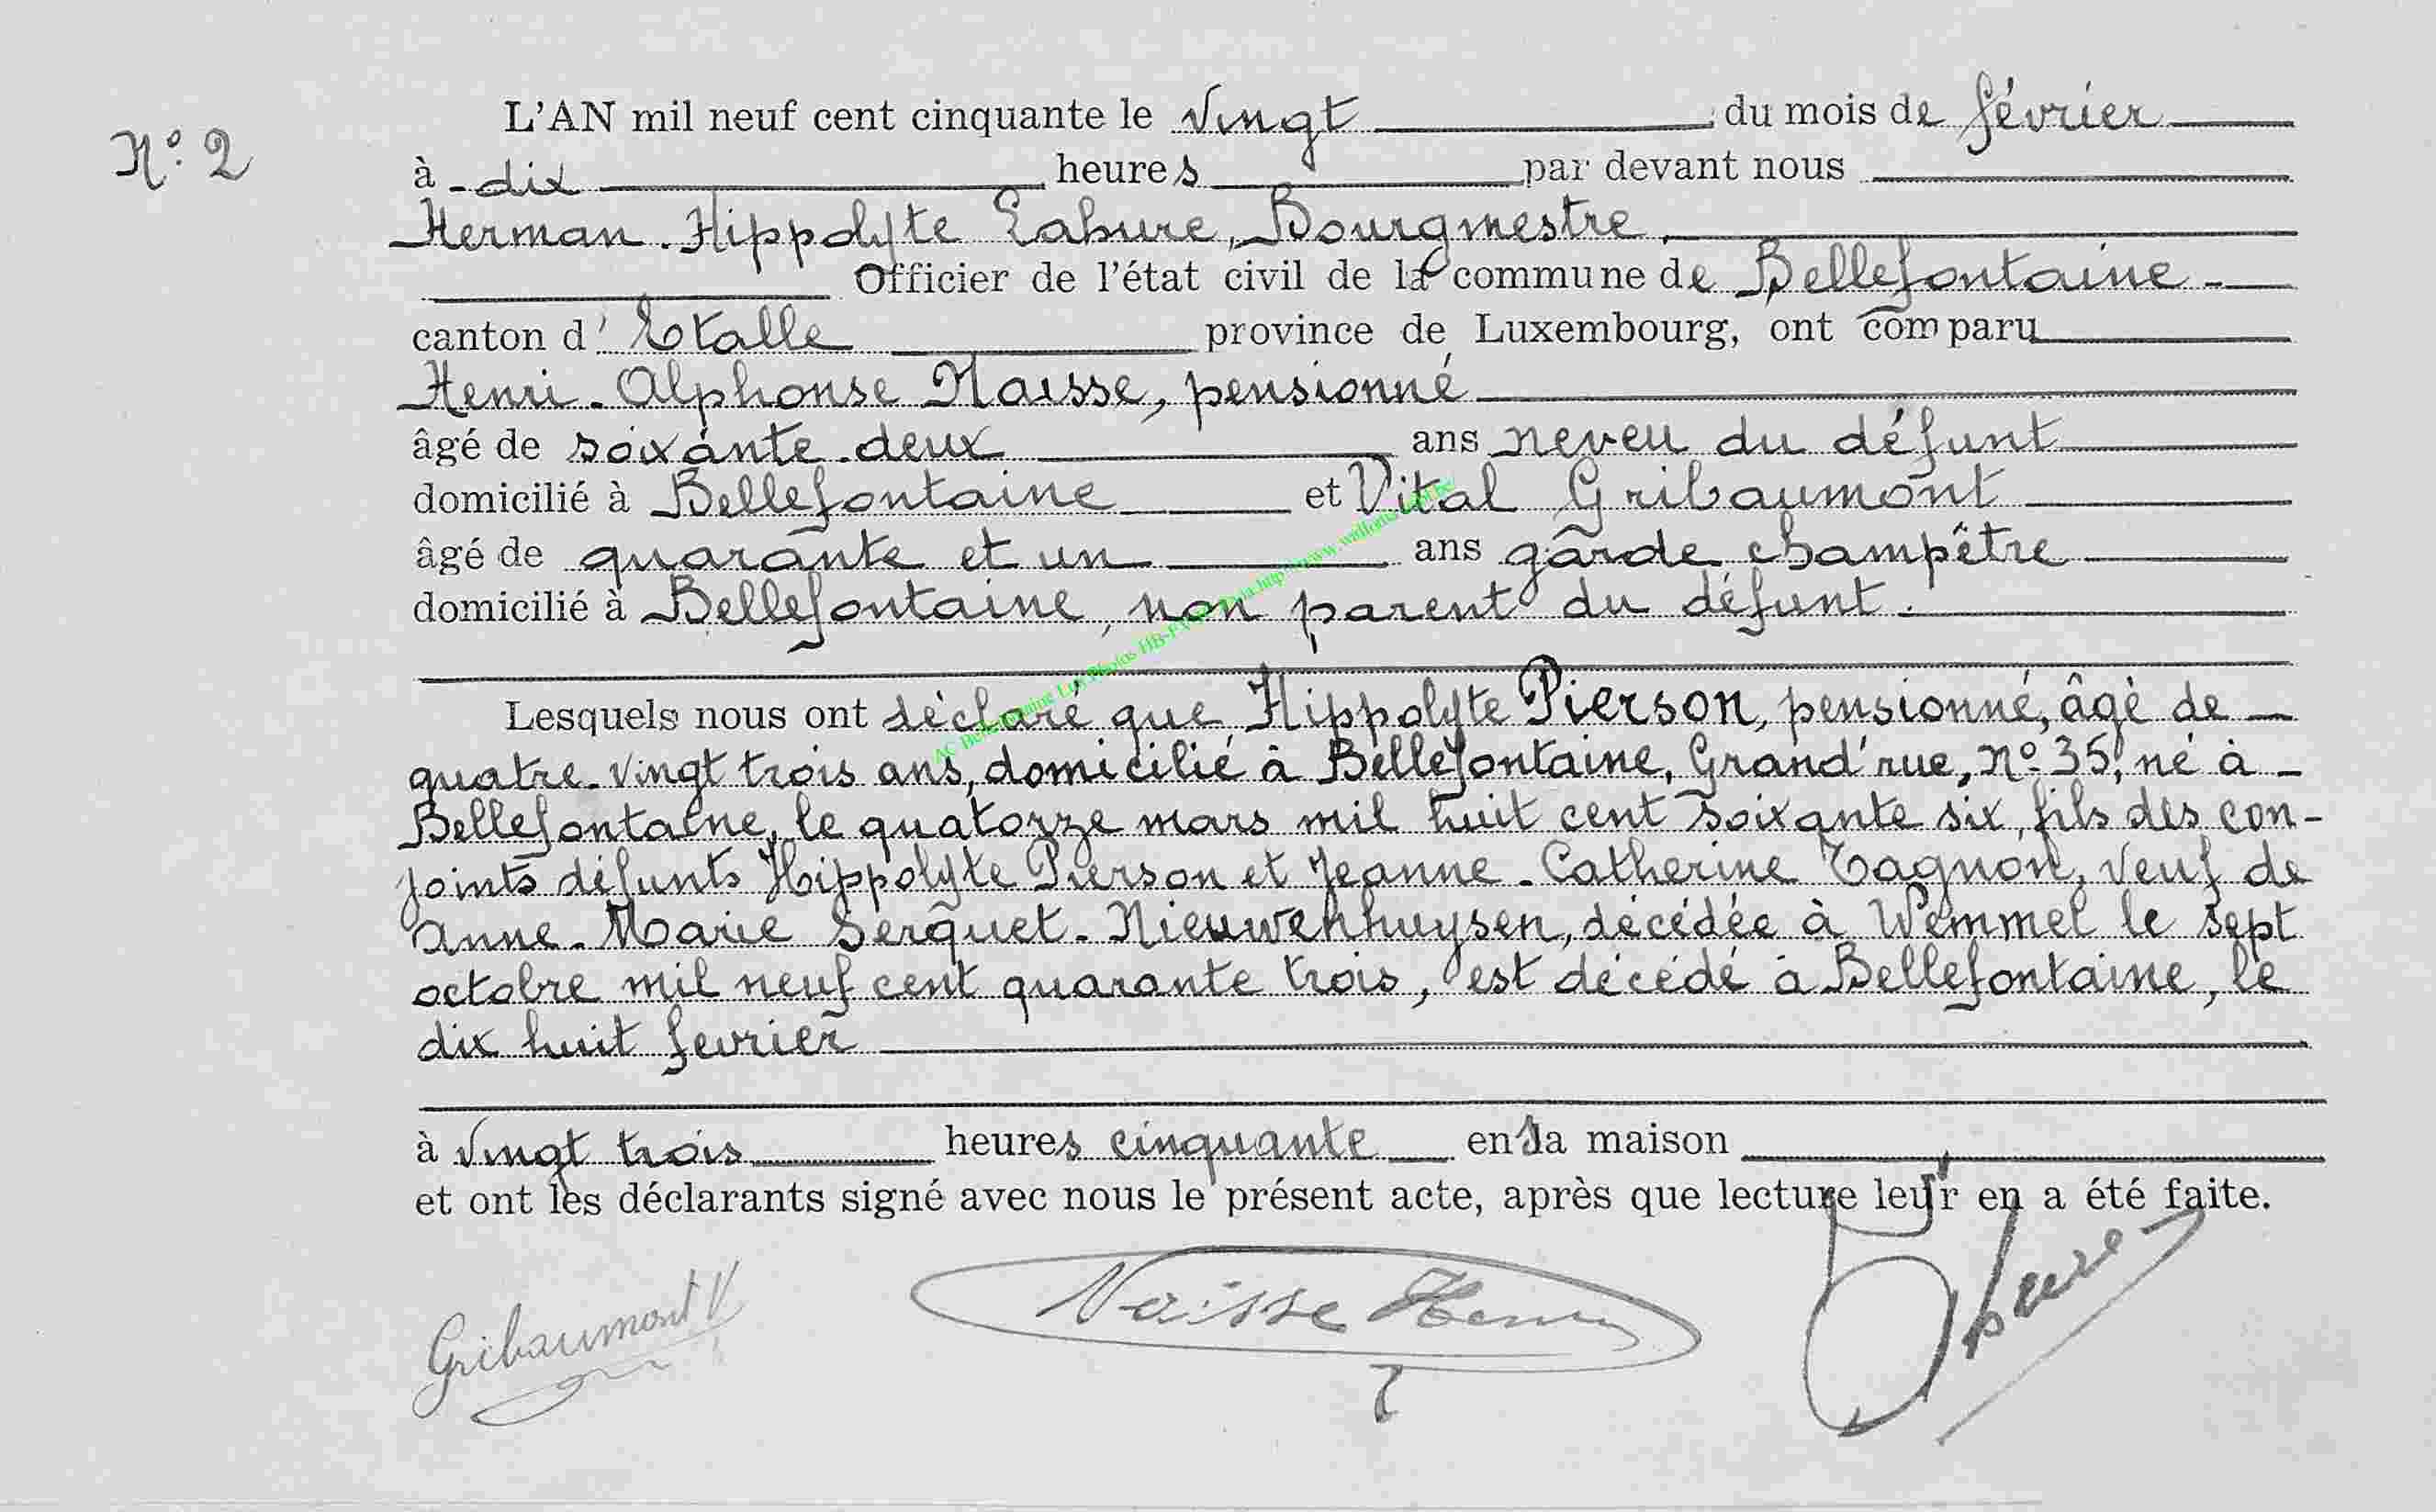 L'AN mil neuf cent cinquante le vingt du mois de février
N° 2
à dix heures par devant nous
Herman-Hippolyte Lahure, Bourgmestre,
Officier de l'état civil de la commune de Bellefontaine
canton d'Etalle province de Luxembourg, ont comparu
Henri-Alphonse Naisse, pensionné
âgé de soixante-deux ans neveu du défunt
domicilié à Bellefontaine et Vital Gribaumont
âgé de quarante et un ans garde champêtre
domicilié à Bellefontaine, non parent du défunt.
Lesquels nous ont déclaré que Hippolyte Pierson, pensionné, âgé de
quatre-vingt trois ans, domicilié à Bellefontaine, Grand'rue, N° 35, né à
Bellefontaine, le quatorze mars mil huit cent soixante six, fils des con-
joints défunts Hippolyte Pierson et Jeanne-Catherine Tagnon, veuf de
Anne-Marie Serquet-Nieuwenhuysen, décédée à Wemmel le sept
octobre mil neuf cent quarante trois, est décédé à Bellefontaine, le
dix huit fevrier
à vingt trois heures cinquante en sa maison
et ont les déclarants signé avec nous le présent acte, après que lecture leur en a été faite.
Gribaumont V
Naisse Henri
Lahure